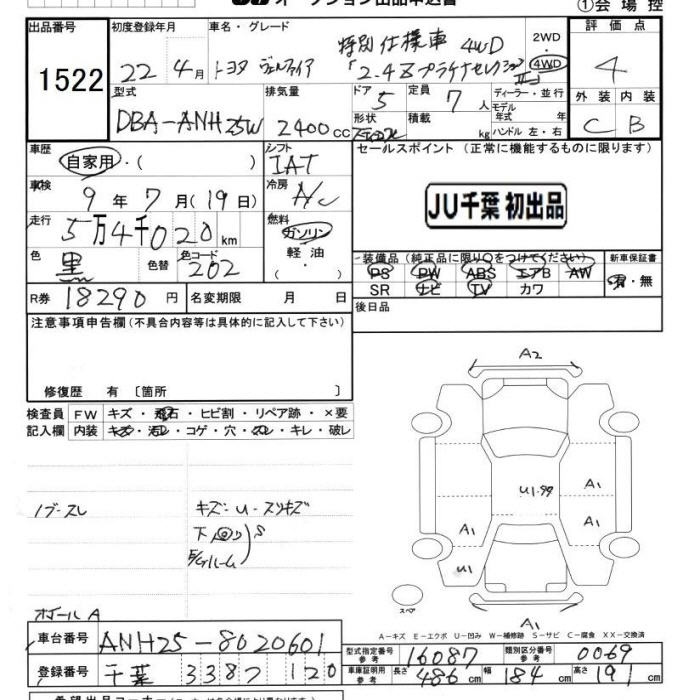 オークション出品申込書
①会場控
出品番号 1522
初度登録年月 22年4月
車名・グレード トヨタ ヴェルファイア 特別仕様車 4WD
「2.4Z プラチナセレクションII」
2WD 4WD
評価点 4
型式 DBA-ANH25W
排気量 2400cc
ドア 5
定員 7人
ディーラー・並行
モデル年式 年
形状
積載 kg
ハンドル 左・右
外装 C
内装 B
車歴 自家用・( )
シフト IAT
セールスポイント (正常に機能するものに限ります)
JU千葉 初出品
車検 9年7月(19日)
冷房 A/C
走行 5万4千020km
燃料 ガソリン・軽油・
色 黒
色替
色コード 202
装備品 (純正品に限り○をつけてください)
新車保証書 有・無
PS PW ABS エアB AW
SR ナビ TV カワ
R券 18290円
名変期限 月 日
後日品
注意事項申告欄 (不具合内容等は具体的に記入して下さい)
修復歴 有 〔箇所 〕
検査員記入欄
FW キズ・飛石・ヒビ割・リペア跡・×要
内装 キズ・汚レ・コゲ・穴・スレ・キレ・破レ
キズ・U・スリキズ
下回りS
E/Gルーム
ホイールA
A2
U1.99
A1
A1
A1
A1
U1
A1
スペア
A-キズ E-エクボ U-凹み W-補修跡 S-サビ C-腐食 XX-交換済
車台番号 ANH25-8020601
登録番号 千葉 338 120
型式指定番号 参考 16087
類別区分番号 参考 0069
車庫証明用参考 長さ 486cm 幅 184cm 高さ 191cm